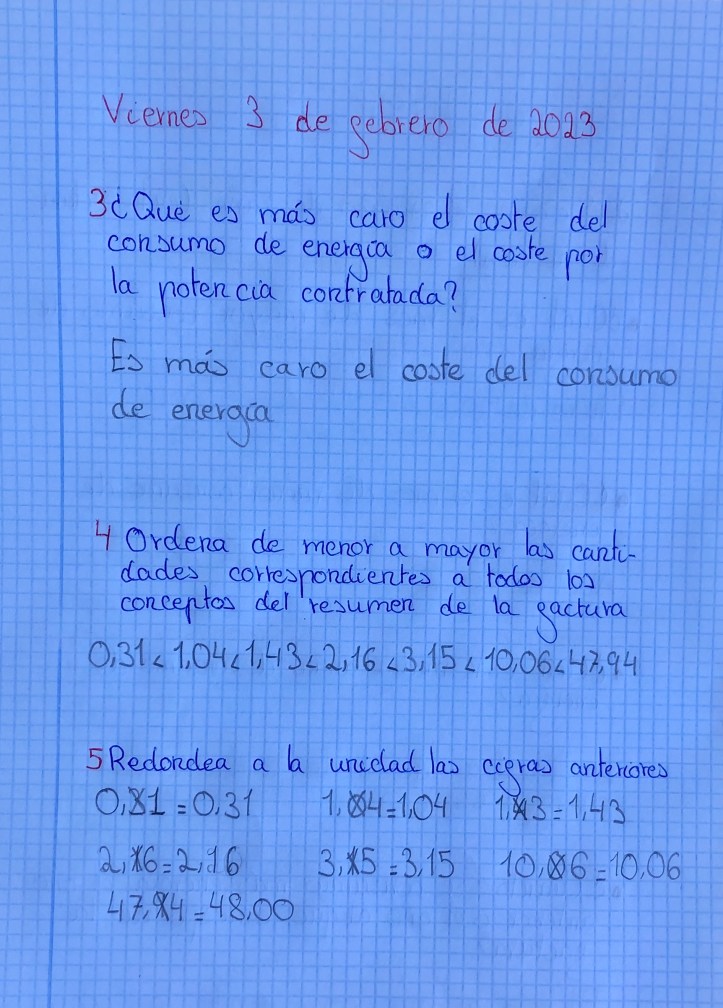 Viernes 3 de febrero de 2023
3¿Qué es más caro el coste del
consumo de energía o el coste por
la potencia contratada?
Es más caro el coste del consumo
de energía
4 Ordena de menor a mayor las canti-
dades correspondientes a todos los
conceptos del resumen de la factura
0,31<1,04<1,43<2,16<3,15<10,06<47,94
5 Redondea a la unidad las cifras anteriores
0,31=0,31 1,04=1,04 1,43=1,43
2,16=2,16 3,15=3,15 10,06=10,06
47,94=48,00